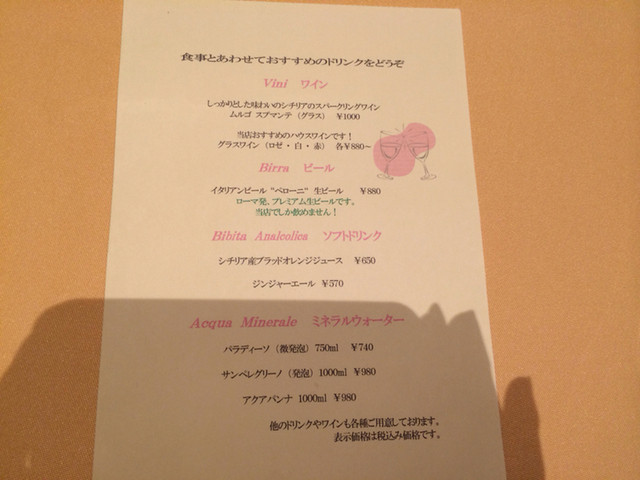 食事とあわせておすすめのドリンクをどうぞ
Vini ワイン
しっかりとした味わいのシチリアのスパークリングワイン
ムルゴ スプマンテ（グラス） ￥1000
当店おすすめのハウスワインです！
グラスワイン（ロゼ・白・赤） 各￥880～
Birra ビール
イタリアンビール "ペローニ" 生ビール ￥880
ローマ発、プレミアム生ビールです。
当店でしか飲めません！
Bibita Analcolica ソフトドリンク
シチリア産ブラッドオレンジジュース ￥650
ジンジャーエール ￥570
Acqua Minerale ミネラルウォーター
パラディーソ（微発泡）750ml ￥740
サンペレグリーノ（発泡）1000ml ￥980
アクアパンナ 1000ml ￥980
他のドリンクやワインも各種ご用意しております。
表示価格は税込み価格です。